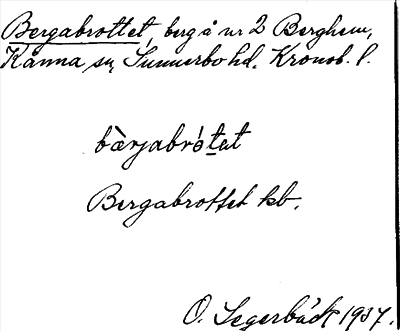 Bergabrottet, berg å nr 2 Berghem,
Kånna sn, Sunnerbo hd. Kronob. l.
bæ̀rjabrótat
Bergabrottet kb.
O. Segerbäck 1937.